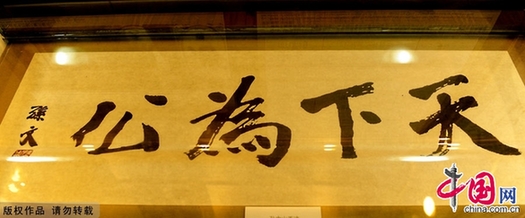 天下為公
孫文
版权作品 请勿转载
中国网